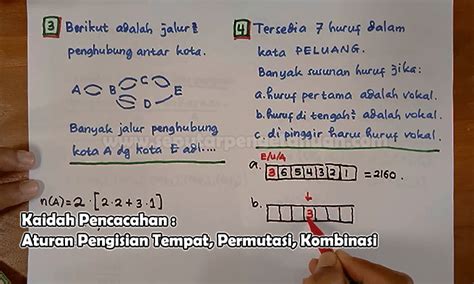 3 Berikut adalah jalur2
penghubung antar kota.
A B C D E
Banyak jalur penghubung
kota A dg kota E adl....
n(A)= 2 · [2·2+3·1]
4 Tersedia 7 huruf dalam
kata PELUANG.
Banyak susunan huruf jika:
a. huruf pertama adalah vokal.
b. huruf di tengah2 adalah vokal.
c. di pinggir harus huruf vokal.
E/U/A
a. 3 6 5 4 3 2 1 = 2160.
b. 3
Kaidah Pencacahan :
Aturan Pengisian Tempat, Permutasi, Kombinasi